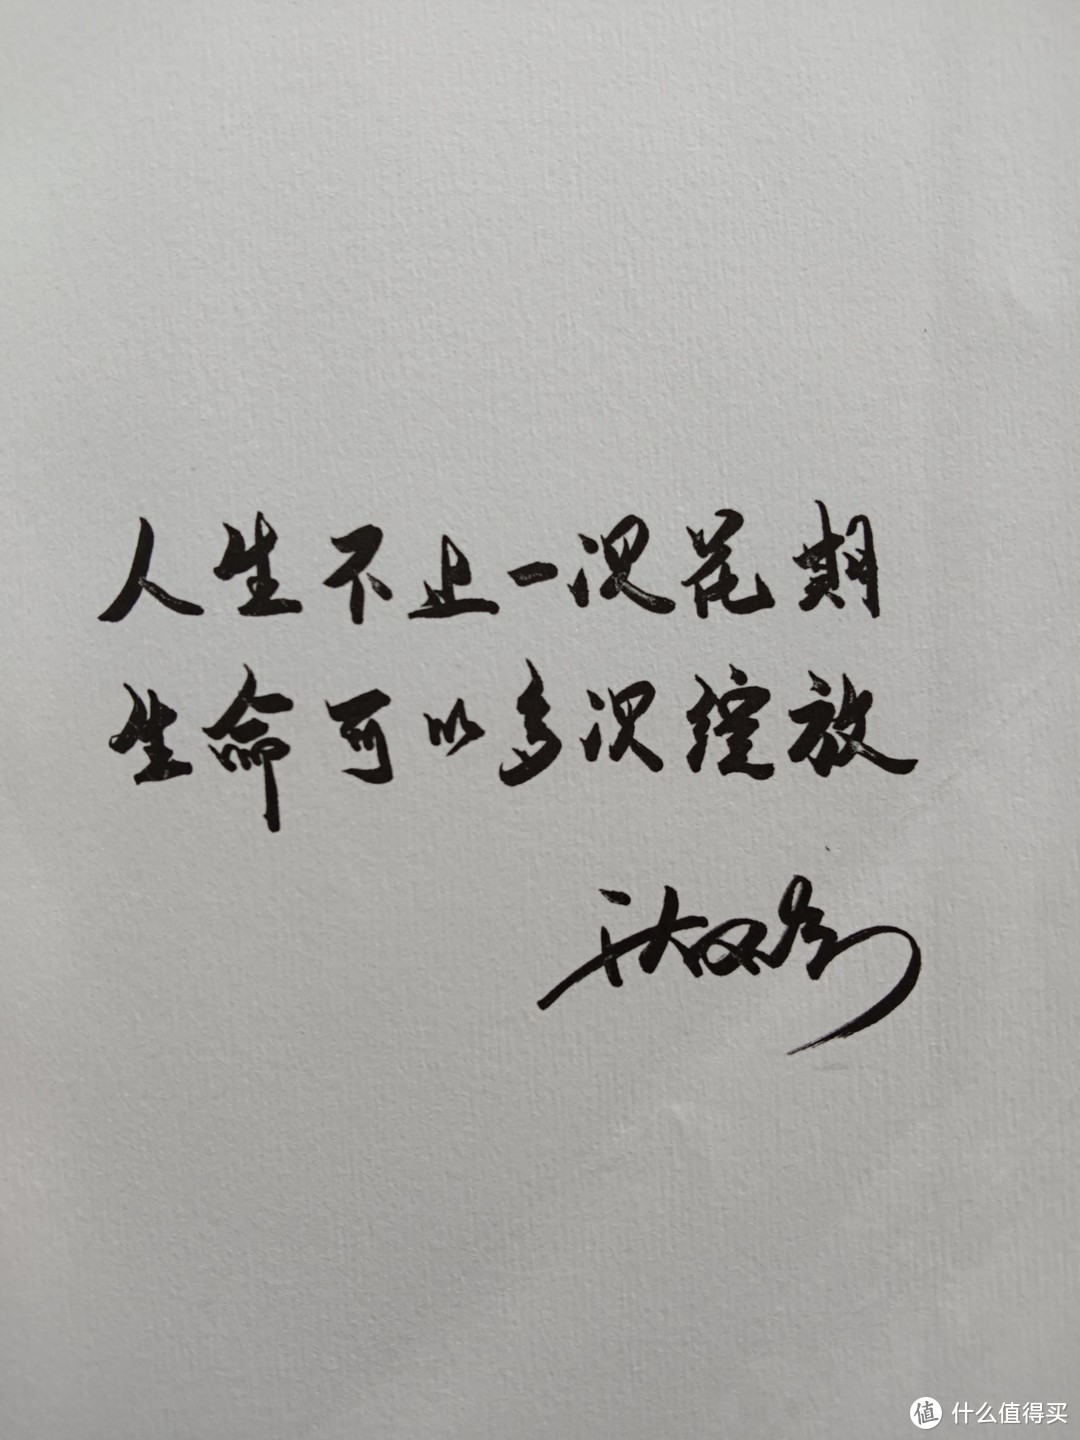 人生不止一次花期
生命可以多次绽放
值 什么值得买